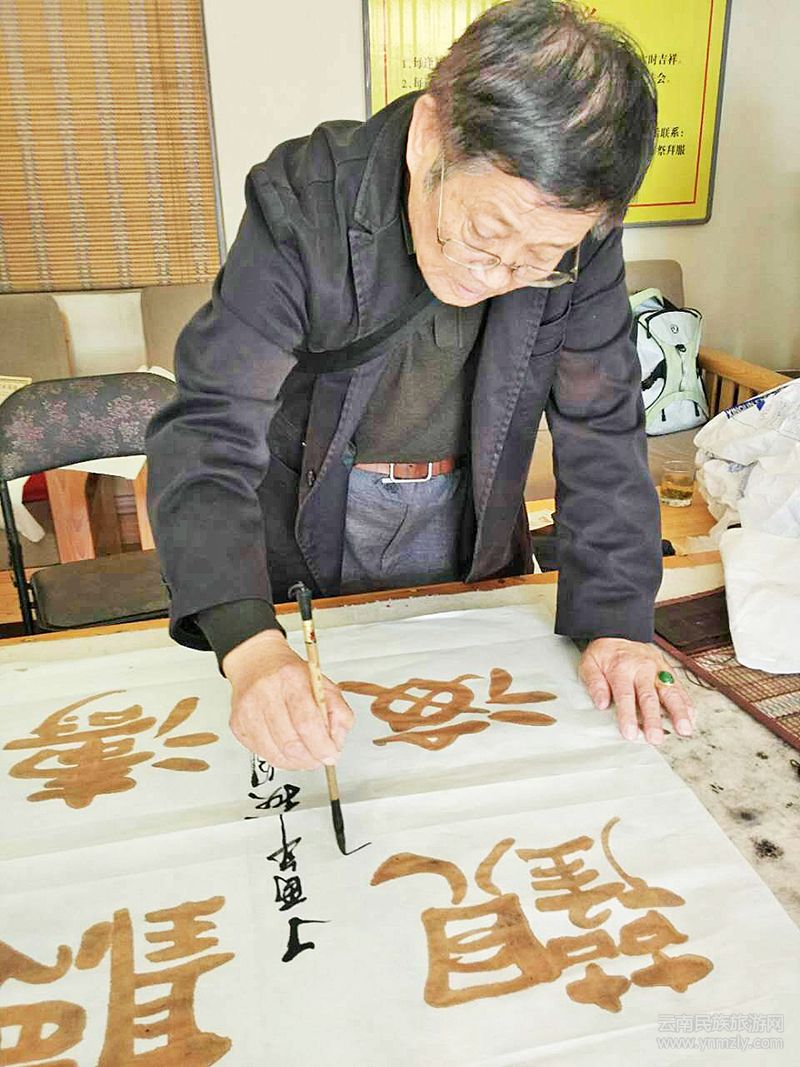 1.每逢
时吉祥。
2.每
会。
联系：
祭拜服
聽濤
丁酉年秋
觀海
云南民族旅游网
www.ynmzly.com